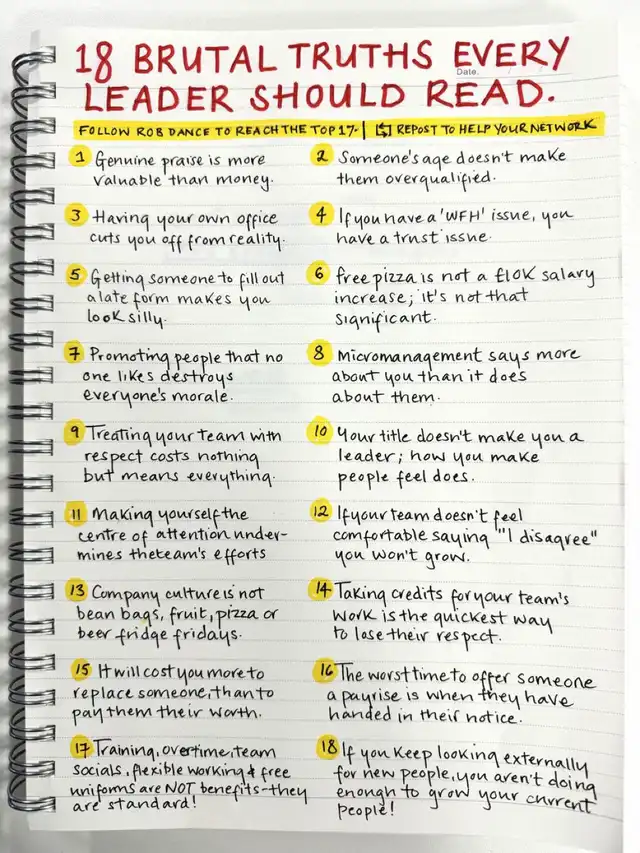 18 BRUTAL TRUTHS EVERY
Date.
LEADER SHOULD READ.
FOLLOW ROB DANCE TO REACH THE TOP 17. | REPOST TO HELP YOUR NETWORK
1 Genuine praise is more
valuable than money.
2 Someone's age doesn't make
them overqualified.
3 Having your own office
cuts you off from reality.
4 If you have a 'WFH' issue, you
have a trust issue.
5 Getting someone to fill out
a late form makes you
look silly.
6 free pizza is not a £10K salary
increase; it's not that
significant.
7 Promoting people that no
one likes destroys
everyone's morale.
8 Micromanagement says more
about you than it does
about them.
9 Treating your team with
respect costs nothing
but means everything.
10 Your title doesn't make you a
leader; how you make
people feel does.
11 Making yourself the
centre of attention under-
mines the team's efforts
12 If your team doesn't feel
comfortable saying "I disagree"
you won't grow.
13 Company culture is not
bean bags, fruit, pizza or
beer fridge fridays.
14 Taking credits for your team's
work is the quickest way
to lose their respect.
15 It will cost you more to
replace someone, than to
pay them their worth.
16 The worst time to offer someone
a payrise is when they have
handed in their notice.
17 Training, overtime, team
socials, flexible working & free
uniforms are NOT benefits-they
are standard!
18 If you keep looking externally
for new people, you aren't doing
enough to grow your current
people!